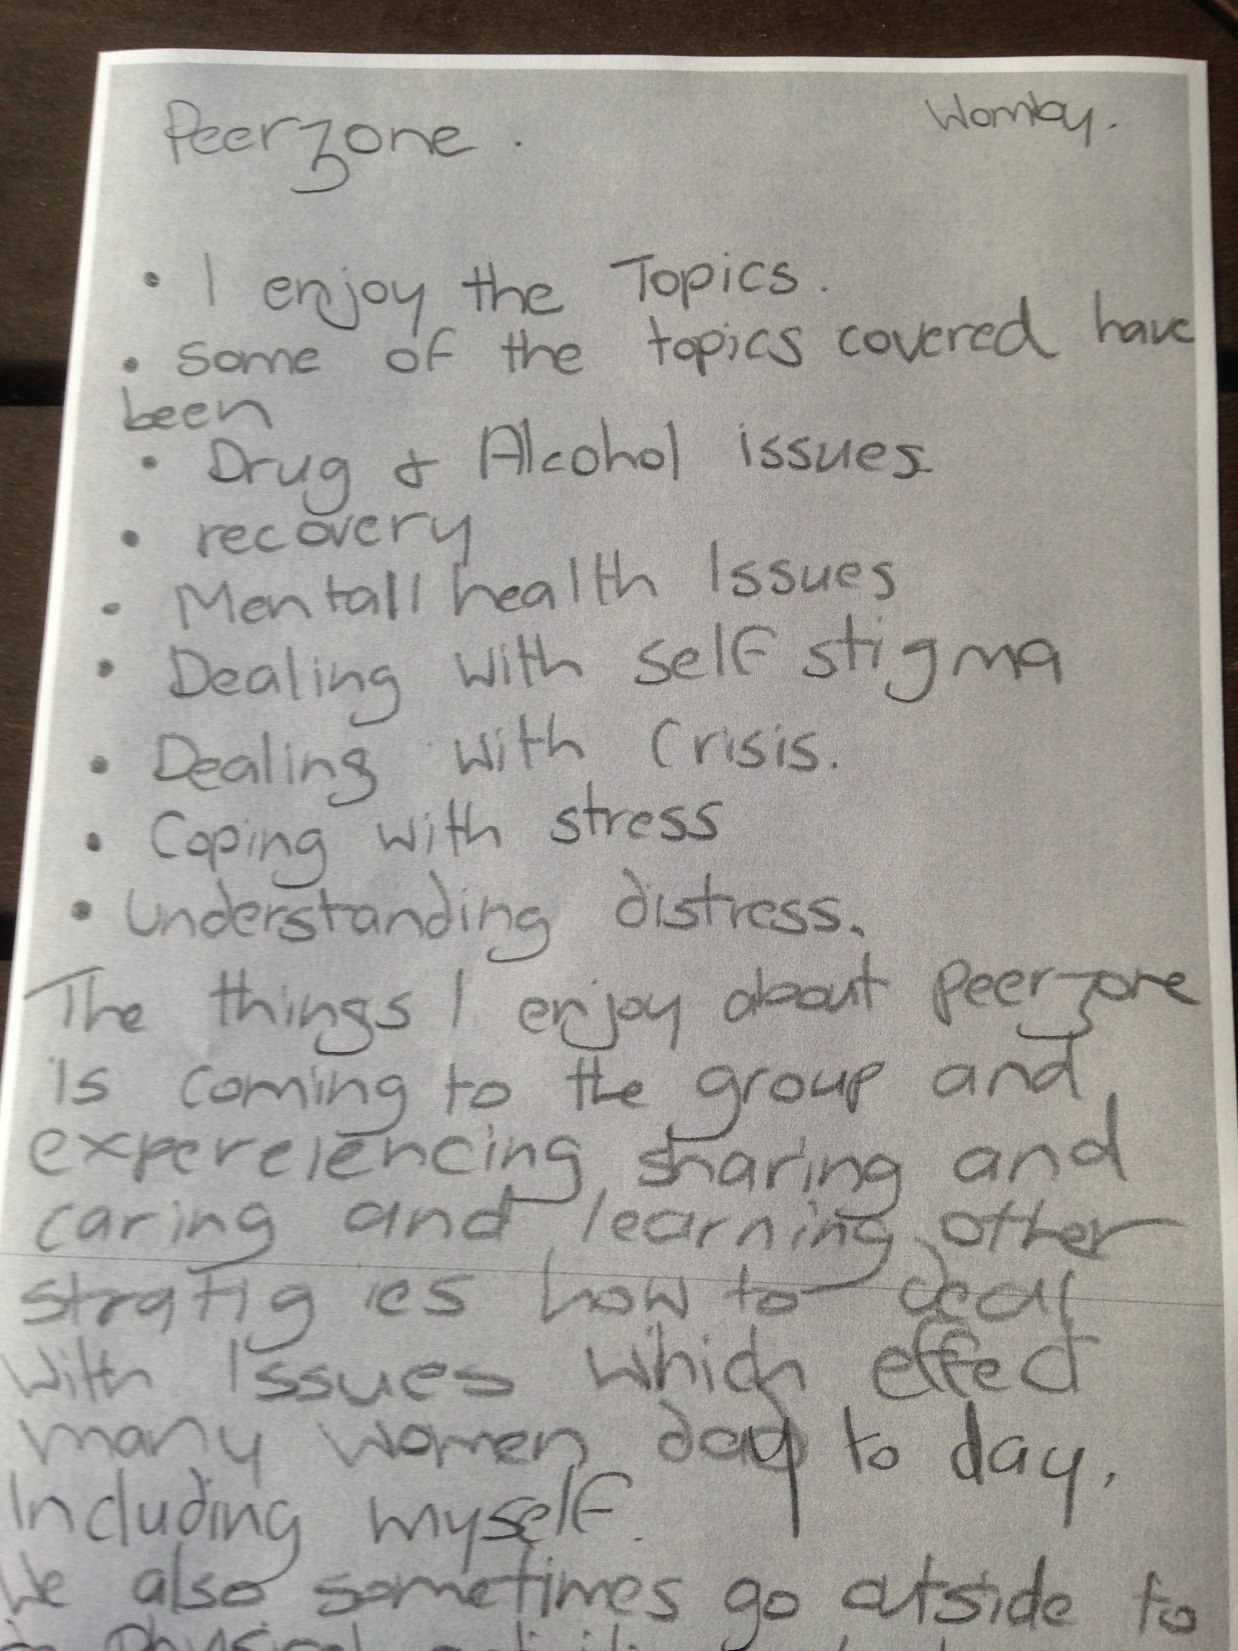 Peerzone. Womby.
• I enjoy the Topics.
• some of the topics covered have
been
• Drug & Alcohol issues.
• recovery
• Mentall health Issues
• Dealing with self stigma
• Dealing with Crisis.
• Coping with stress
• Understanding distress.
The things I enjoy about Peerzone
is coming to the group and
expereiencing, sharing and
caring and learning other
stratigies how to deal
with Issues which effect
many women day to day.
Including myself.
We also sometimes go outside to
Physical